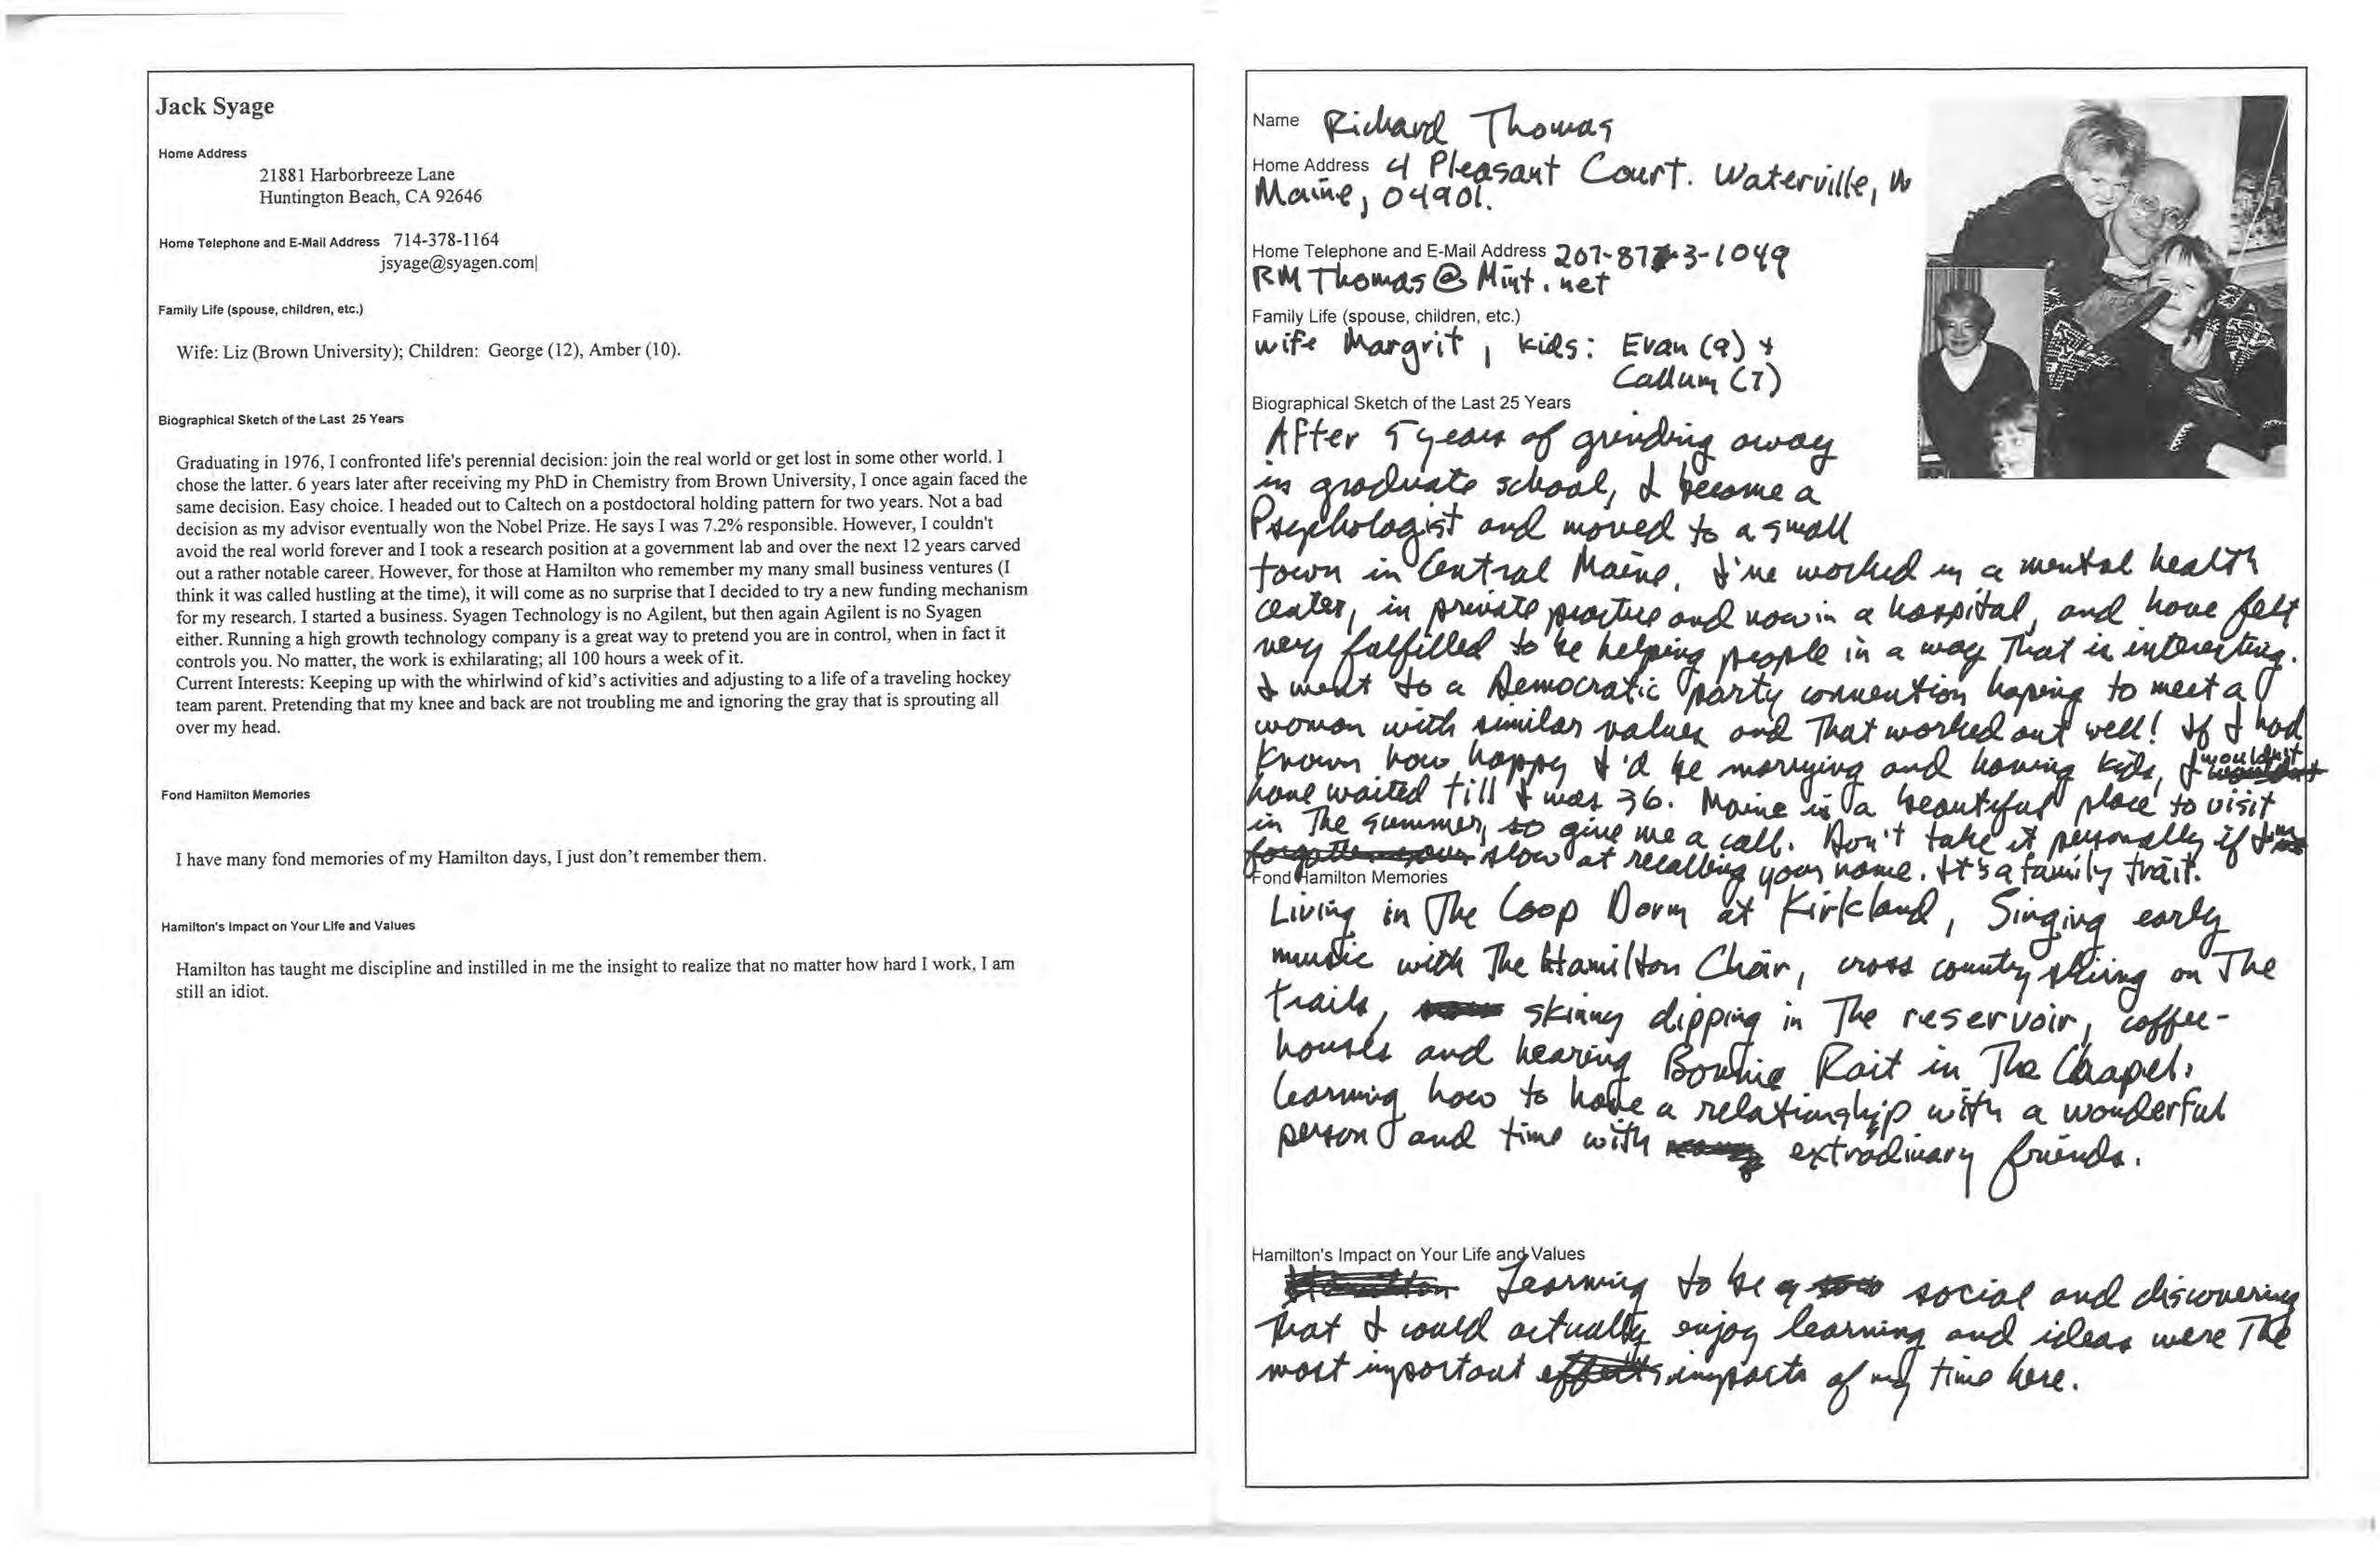 Jack Syage
Home Address
21881 Harborbreeze Lane
Huntington Beach, CA 92646
Home Telephone and E-Mail Address 714-378-1164
jsyage@syagen.com
Family Life (spouse, children, etc.)
Wife: Liz (Brown University); Children: George (12), Amber (10).
Biographical Sketch of the Last 25 Years
Graduating in 1976, I confronted life's perennial decision: join the real world or get lost in some other world. I
chose the latter. 6 years later after receiving my PhD in Chemistry from Brown University, I once again faced the
same decision. Easy choice. I headed out to Caltech on a postdoctoral holding pattern for two years. Not a bad
decision as my advisor eventually won the Nobel Prize. He says I was 7.2% responsible. However, I couldn't
avoid the real world forever and I took a research position at a government lab and over the next 12 years carved
out a rather notable career. However, for those at Hamilton who remember my many small business ventures (I
think it was called hustling at the time), it will come as no surprise that I decided to try a new funding mechanism
for my research. I started a business. Syagen Technology is no Agilent, but then again Agilent is no Syagen
either. Running a high growth technology company is a great way to pretend you are in control, when in fact it
controls you. No matter, the work is exhilarating; all 100 hours a week of it.
Current Interests: Keeping up with the whirlwind of kid's activities and adjusting to a life of a traveling hockey
team parent. Pretending that my knee and back are not troubling me and ignoring the gray that is sprouting all
over my head.
Fond Hamilton Memories
I have many fond memories of my Hamilton days, I just don't remember them.
Hamilton's Impact on Your Life and Values
Hamilton has taught me discipline and instilled in me the insight to realize that no matter how hard I work, I am
still an idiot.
Name Richard Thomas
Home Address 4 Pleasant Court. Waterville,
Maine, 04901.
Home Telephone and E-Mail Address 207-873-1049
RMThomas@Mint.net
Family Life (spouse, children, etc.)
wife Margrit, kids: Evan (9) +
Callum (7)
Biographical Sketch of the Last 25 Years
After 5 years of grinding away
in graduate school, I became a
Psychologist and moved to a small
town in Central Maine. I've worked in a mental health
center, in private practice and now in a hospital, and have felt
very fulfilled to be helping people in a way That is interesting.
I went to a Democratic party convention hoping to meet a
woman with similar values and That worked out well! If I had
known how happy I'd be marrying and having kids, I wouldn't
have waited till I was 36. Maine is a beautiful place to visit
in The summer, so give me a call. Don't take it personally if I'm
slow at recalling your name. It's a family trait.
Fond Hamilton Memories
Living in The Coop Dorm at Kirkland, Singing early
music with The Hamilton Choir, cross country skiing on The
trails, skinny dipping in The reservoir, coffee-
houses and hearing Bonnie Rait in The Chapel.
Learning how to have a relationship with a wonderful
person and time with extrodinary friends.
Hamilton's Impact on Your Life and Values
Learning to be social and discovering
That I could actually enjoy learning and ideas were The
most important impacts of my time here.